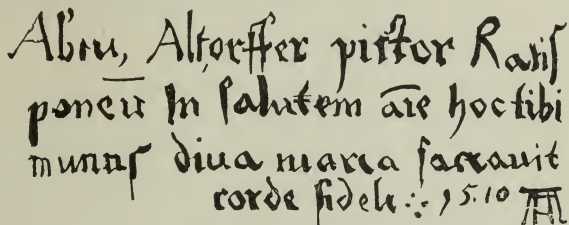 Abtu, Altorffer pictor Ratis
ponen In salutem aīe hoc tibi
munus diua maria sacrauit
corde fideli ∴ 15.10 AA